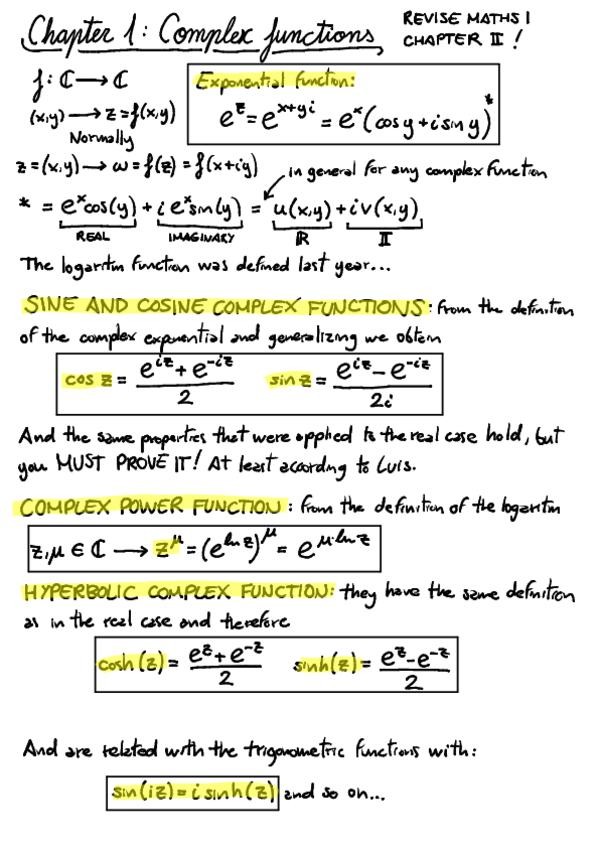 Chapter 1: Complex functions
REVISE MATHS I
CHAPTER II !
f: ℂ → ℂ
(x,y) → z = f(x,y)
Normally
Exponential function:
e^z = e^{x+yi} = e^x (cos y + i sin y)*
z = (x,y) → ω = f(z) = f(x+iy)
in general for any complex function
* = e^x cos(y) + i e^x sin(y) = u(x,y) + i v(x,y)
REAL IMAGINARY ℝ 𝕀
The logaritm function was defined last year...
SINE AND COSINE COMPLEX FUNCTIONS: from the definition
of the complex exponential and generalizing we obtain
cos z = (e^{iz} + e^{-iz})/2 sin z = (e^{iz} - e^{-iz})/2i
And the same properties that were applied to the real case hold, but
you MUST PROVE IT! At least according to Luis.
COMPLEX POWER FUNCTION: from the definition of the logaritm
z, μ ∈ ℂ → z^μ = (e^{ln z})^μ = e^{μ·ln z}
HYPERBOLIC COMPLEX FUNCTION: they have the same definition
as in the real case and therefore
cosh(z) = (e^z + e^{-z})/2 sinh(z) = (e^z - e^{-z})/2
And are related with the trigonometric functions with:
sin(iz) = i sinh(z) and so on...